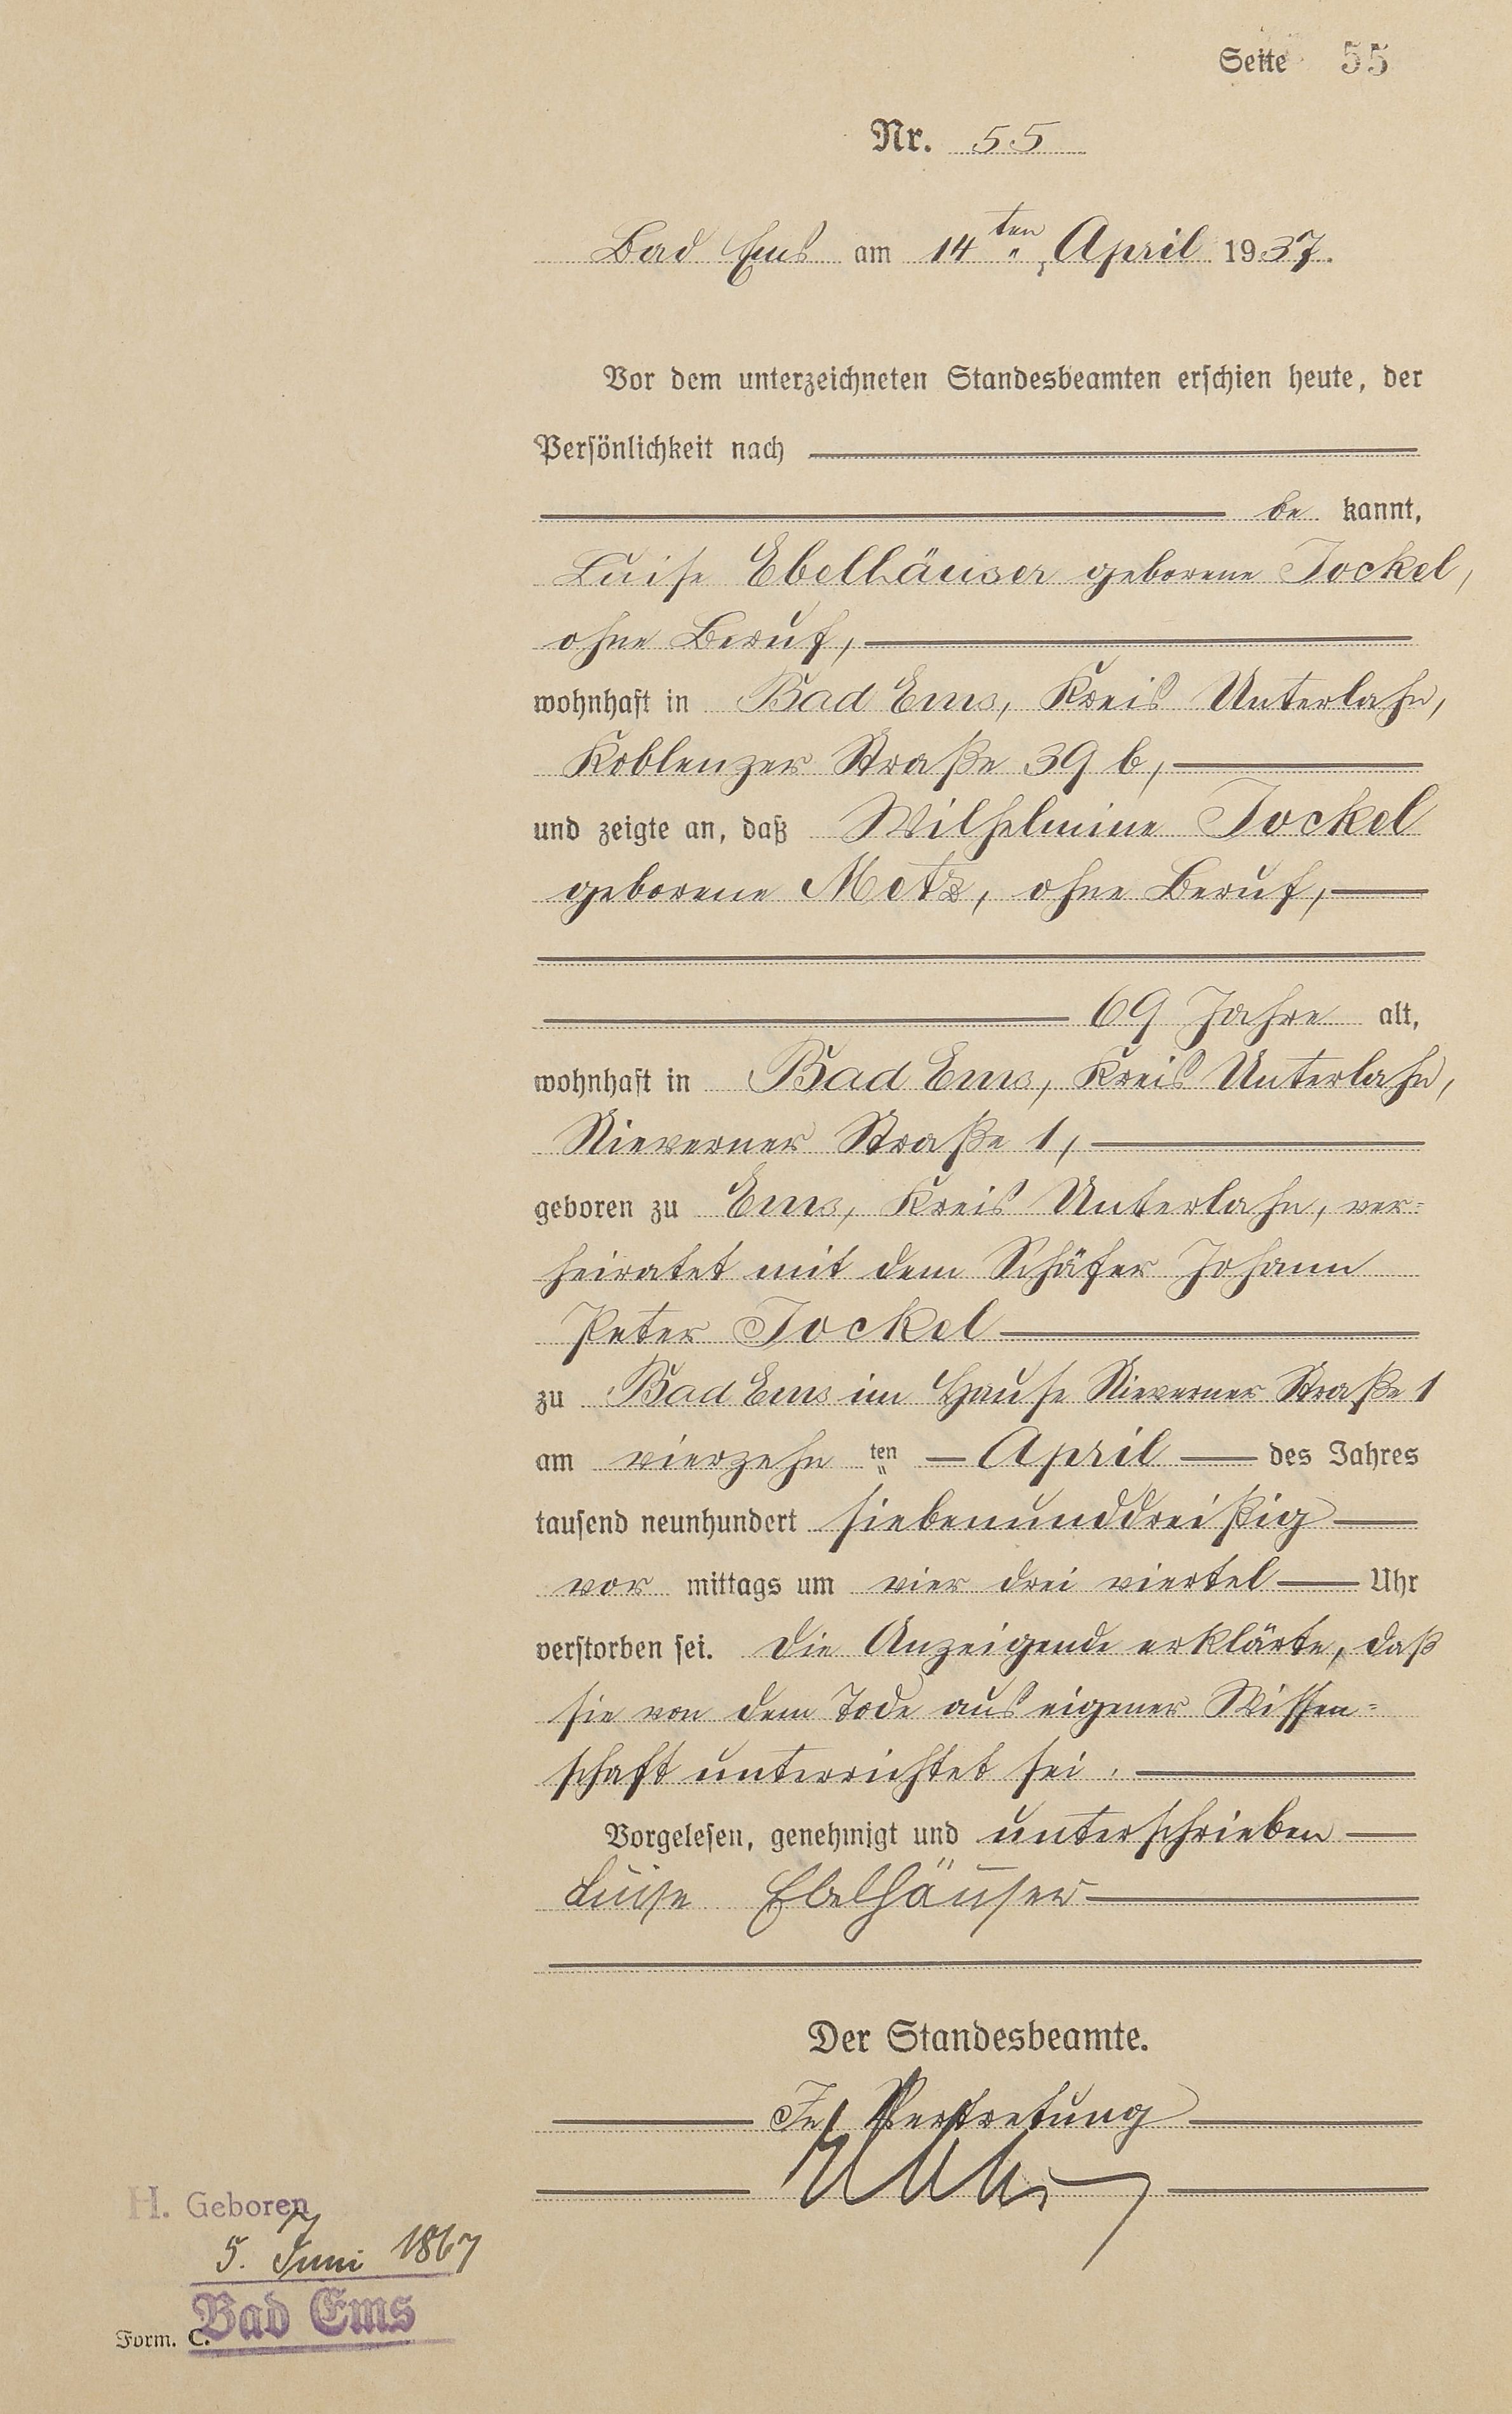 Seite 55
Nr. 55
Bad Ems am 14ten April 1937.
Vor dem unterzeichneten Standesbeamten erschien heute, der
Persönlichkeit nach
be kannt,
Luise Ebelhäuser geborene Jockel,
ohne Beruf,
wohnhaft in Bad Ems, Kreis Unterlahn,
Koblenzer Straße 39 b,
und zeigte an, daß Wilhelmine Jockel
geborene Metz, ohne Beruf,
69 Jahre alt,
wohnhaft in Bad Ems, Kreis Unterlahn,
Nieverner Straße 1,
geboren zu Ems, Kreis Unterlahn, ver=
heiratet mit dem Schäfer Johann
Peter Jockel
zu Bad Ems im Hause Nieverner Straße 1
am vierzehn ten April des Jahres
tausend neunhundert siebenunddreißig
vor mittags um vier drei viertel Uhr
verstorben sei. Die Anzeigende erklärte, daß
sie von dem Tode aus eigener Wissen=
schaft unterrichtet sei.
Vorgelesen, genehmigt und unterschrieben
Luise Ebelhäuser
Der Standesbeamte.
In Vertretung
H. Geboren
5. Juni 1867
Bad Ems
Form. C.